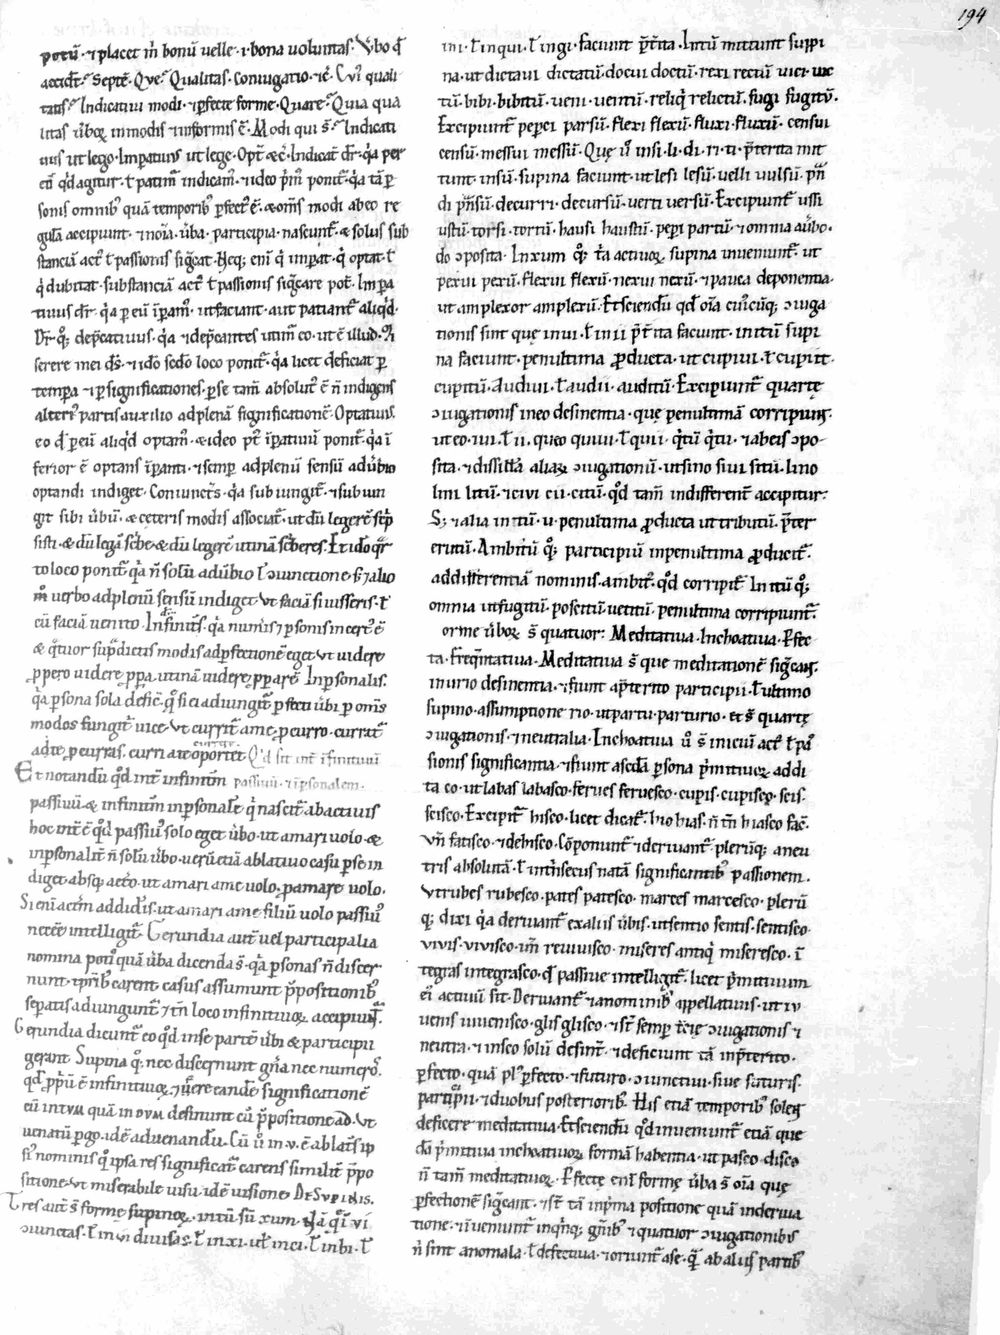 194
potū· ⁊ placet m̄ bonū uelle· i· bona uoluntas· Vbo q̄
accid̄t· Septē· Que· Qualitas· Coniugatio· ⁊c̄· Cui quali
tatis· Indicatiui modi· ⁊ ꝑfecte forme· Quare· Quia qua
litas ūboꝝ in modis ⁊ in formis ē· Modi qui s̄· Indicati
uus ut lego· Imꝑatiuus ut lege· Opt̄· ⁊c̄· Indicat̄ dr̄· q̇a per
eū qd̄ agitur· ł patim̄ indicam̄· ⁊ ideo p̄m̄ ponit̄· q̇a tā ꝑ
sonis omnibꝫ quā temporibꝫ ꝑfectꝰ ē· ⁊ om̄s modi ab eo re
gulā accipiunt· ⁊ noīa· ūba· participia· nascunt̄· & solus sub
stanciā act̄ ł passionis sig̈cat· Hęcꝫ eni q̇ imꝑat· q̇ optat· ł
q̇ dubitat· substanciā act̄ ł passionis sig̈care pot̄· Imꝑa
tiuus dr̄· q̇a ꝑ eū īꝑam̄· ut faciant· aut patiant̄ aliqd̄·
Dr̄· q̊ꝫ dep̄catiuus· q̇a ⁊ dep̄cantes utim̄ eo· ut ē illud· Mi
serere mei ds̄· ⁊ idō sēdo loco ponit̄· q̇a licet deficiat ꝑ
temꝑa· ⁊ ꝑ significationes· ꝑ se tam̄ absolutꝰ ē· & n̄ indigens
alteriꝰ partis auxilio ad plenā significationē· Optatiuus
eo q̄ ꝑ eū aliqd̄ optam̄· & ideo pꝰt īꝑatiuū ponit̄· q̇a ī
ferior ē optans īꝑanti· ⁊ semꝑ ad plenū sensū adūbio
optandi indiget· Coniunct̄s· q̇a subiungit̄· ⁊ subiun
git sibi ūbū· & ceteris modis associat̄· ut dū legerē sc̄p
sisti· & dū legā sc̄be· & dū legerē utinā sc̄beres· Et idō q̊r
to loco ponit̄· q̇a n̄ solū adūbio ł ↄiunctione· s; ⁊ alio
m̄ uerbo ad plenū sensū indiget· Vt faciā si iusseris· ł
cū faciā uenito· Infinit̄s· q̇a num̄is ⁊ ꝑsonis incertꝰ ē
& q̊tuor sup̄dictis modis ad ꝑfectionē eget· Vt uidere
ꝓpero uidere ꝓꝑa· utinā uidere ꝓꝑarē· Inꝑsonalis·
q̇a ꝑsona sola defic̄· q̊ si ei adiungit̄ ꝑfecti ūbi ꝑ om̄s
modos fungit̄ uice· Vt currit̄ a me· ꝓ curro· currat̄
a te· ꝓ curras· curri a te oportet Qd̄ sit int̄ īfinitiuū
Et notandū qd̄ int̄ infinitiuū passiuū· ⁊ īꝑsonalem·
passiuū & infinitiuū inꝑsonale q̇ nascit̄ ab actiuis
hoc int̄ ē· qd̄ passiuꝰ solo eget ūbo· ut amari uolo· &
inꝑsonalit̄ n̄ solū ūbo· uerū etiā ablatiuo casu ꝑ se in
diget absqꝫ accō· ut amari a me uolo· ꝓ amare uolo·
Si eni accm̄ addid̄is· ut amari a me filiū uolo passiuꝰ
necēē intelligit̄· Gerundia aut̄ uel participalia
nomina potiꝰ quā ūba dicenda s̄· q̇a ꝑsonas n̄ discer
nunt· ⁊ tp̄ribꝫ carent· casus assumunt· p̄positionibꝫ
sepatis adiungunt̄· ⁊ in loco infinitiuoꝝ accipiunt̄·
Gerundia dicunt̄ eo qd̄ in se partē ūbi & participii
gerant· Supina q̊ꝫ nec discernunt gn̄a nec numeros·
qd̄ ꝓpriū ē infinitiuoꝝ· ⁊ iuxere eandē significationē
cū in TVM quā in DVM desinunt cū p̄positione ad· Vt
uenatū ꝑgo· idē ad uenandū· Cū ū in· v· ē ablat̄s ip
siꝰ nominis q̊ ipsa res significat̄· carens similit̄ p̄po
sitione· Vt miserabile uisu· idē uisione· DE SVPINIS·
Tres aut̄ s̄ formę supinoꝝ· in tū· sū· xum· Nā q̄ ī· vi
ↄiunctas· ł in vi diuisas· ł in xi· ut ł in ci· ł in bi· ł
ini· ł in qui· ł in gi· faciunt p̄t̄ita· In tū mittunt supi
na· ut dictaui dictatū· docui doctū· rexi rectū uici uic
tū· bibi bibitū· ueni· uentū· reliq̇ relictū· fugi fugitū·
Excipiunt̄ peperci parsū· flexi flexū· fluxi· fluxū· censui
censū· messui messū· Quę ū in si· li· di· ri· ti· p̄terita mit
tunt· in sū· supina faciunt· ut lesi lesū· uelli uulsū· p̄n
di p̄nsū· decurri· decursū· uerti uersū· Excipiunt̄ ussi
ustū· torsi· tortū· hausi haustū· peperi partū· ⁊ omnia a ūbo·
do ↄposita· In xum q̊ꝫ t̄a actiuoꝝ supina inueniunt̄· ut
pexui pexū· flexui flexū· nexui nexū· ⁊ pauca deponentia·
ut amplexor amplexū· Et sciendū qd̄ oīa cuiꝰcūqꝫ ↄiuga
tionis sint que in ui· ł in ii p̄t̄ita faciunt· in itū supi
na faciunt· penultima ꝓducta· ut cupiui· ł cupiit·
cupitū· Audiui· ł audii· auditū· Excipiunt̄ quartę
ↄiugationis in eo desinentia· que penultimā corripiunt·
ut eo· iui· ł ii· queo quiui· ł quii· q̊tū q̊tu· ⁊ ab eis ↄpo
sita· ⁊ dissillā aliaꝝ ↄiugationū· ut sino siui sitū· lino
lini litū· ⁊ cieo cii· citū· qd̄ tam̄ indifferent̄ accipitur·
Sꝫ ⁊ alia in tū· u· penultima ꝓducta ut tributū· p̄ter
erutū· Ambitū q̊ꝫ participiū in penultima ꝓducit̄·
ad differentiā nominis· ambitꝰ· qd̄ corripit̄· In itū q̊ꝫ
omnia ut fugitū· positū· uetitū· penultima corripiunt̄·
orme ūboꝝ s̄ quatuor· Meditatiua· Inchoatiua· Ꝑfec
ta· Freq̄ntatiua· Meditatiua s̄ que meditationē sig̈cant·
in urio desinentia· ⁊ fiunt a p̄terito participii· ł ultimo
supino· assumptione rio· ut partu· parturio· et s̄ quartę
ↄiugationis· ⁊ neutralia· Inchoatiua ū s̄ iniciū act̄ ł pas
sionis significantia· ⁊ fiunt a scđa ꝑsona p̄mitiuoꝝ addi
ta co· ut labas labasco· ferues feruesco· cupis· cupisco· scis·
scisco· Excipit̄ hisco· licet dicat̄ hio hias· n̄ tn̄ hiasco fac̄·
Vn̄ fatisco· ⁊ dehisco· Cōponunt̄ ⁊ deriuant̄ plerūqꝫ a neu
tris absolutā· ł intrīsecus natā significantibꝫ passionem·
Vt rubes rubesco· pates patesco· marces marcesco· plerū
qꝫ dixi q̇a deriuant̄ ex aliis ūbis· ut sentio sentis· sentisco·
vivis· vivisco· im̄ reuiuisco· miseres antiq̇ miseresco· ī
tegras integrasco· q̄ passiue intelligit̄· licet p̄mitiuum
ei actiuū sit· Deriuant̄ ⁊ a nominibꝫ appellatiuis· ut iu
uenis iuuenisco· glis glisco· ⁊ st̄ semꝑ t̄cię ↄiugationis ⁊
neutra· ⁊ in sco solū desinūt· ⁊ deficiunt tā in p̄terito·
ꝑfecto· quā plꝰ ꝑfecto· ⁊ futuro· ↄiunctiui· siue futuris·
participii· ⁊ duobus posterioribꝫ· His etiā temporibꝫ solēt
deficere meditatiua· Et sciendū qd̄ inueniunt̄ etiā que
dā p̄mitiua inchoatiuoꝝ formā habentia· ut pasco disco
n̄ tam̄ meditatiuoꝝ· Ꝑfecte eni formę ūba s̄ oīa quę
ꝑfectionē sig̈cant· ⁊ st̄ tā in p̄ma positione quā in deriua
tione· ⁊ inueniunt̄ in q̇nqꝫ gn̄ibꝫ ⁊ quatuor ↄiugationibꝫ
n̄ sint anomala· ł defectiua· ⁊ oriunt̄ a se· q̄ ab aliis partibꝫ